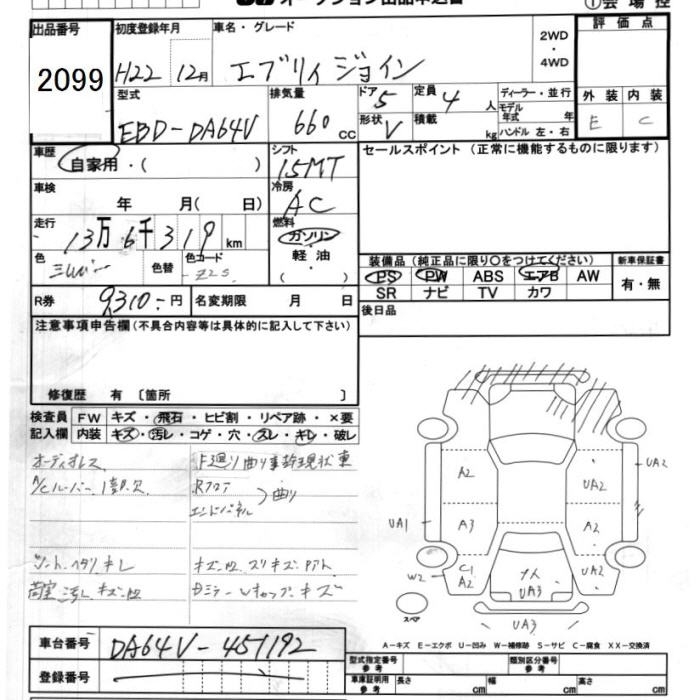 オークション出品申込書
①会場控
出品番号
2099
初度登録年月
H22 12月
車名・グレード
エブリィ ジョイン
2WD
・
4WD
評価点
外装 内装
E C
型式
EBD-DA64V
排気量
660 cc
ドア 5
形状 V
定員 4 人
積載 kg
ディーラー・並行
モデル年式 年
ハンドル 左・右
車歴
自家用・( )
シフト
15MT
セールスポイント(正常に機能するものに限ります)
車検
年 月( 日)
冷房
AC
走行
13万6千319 km
燃料
ガソリン
軽油
( )
色
シルバー
色替
色コード
Z2S
装備品(純正品に限り○をつけてください)
新車保証書
PS PW ABS エアB AW
SR ナビ TV カワ
有・無
R券
9310.-円
名変期限 月 日
後日品
注意事項申告欄(不具合内容等は具体的に記入して下さい)
修復歴 有〔箇所 〕
検査員記入欄
FW キズ・飛石・ヒビ割・リペア跡・×要
内装 キズ・汚レ・コゲ・穴・スレ・キレ・破レ
オーディオレス
A/Cルーバー 1部欠
F廻り曲り事故現状車
Rフロア
エンドパネル
曲り
シートヘタリ キレ
荷室 汚レ キズ凹
キズ凹 スリキズ
キズ
A2
A3
C1
A2
UA1
W2
UA2
UA2
A2
UA2
UA3
UA3
スペア
A-キズ E-エクボ U-凹み W-補修跡 S-サビ C-腐食 XX-交換済
車台番号
DA64V-451192
登録番号
型式指定番号
参考
類別区分番号
参考
車庫証明用
参考
長さ cm
幅 cm
高さ cm